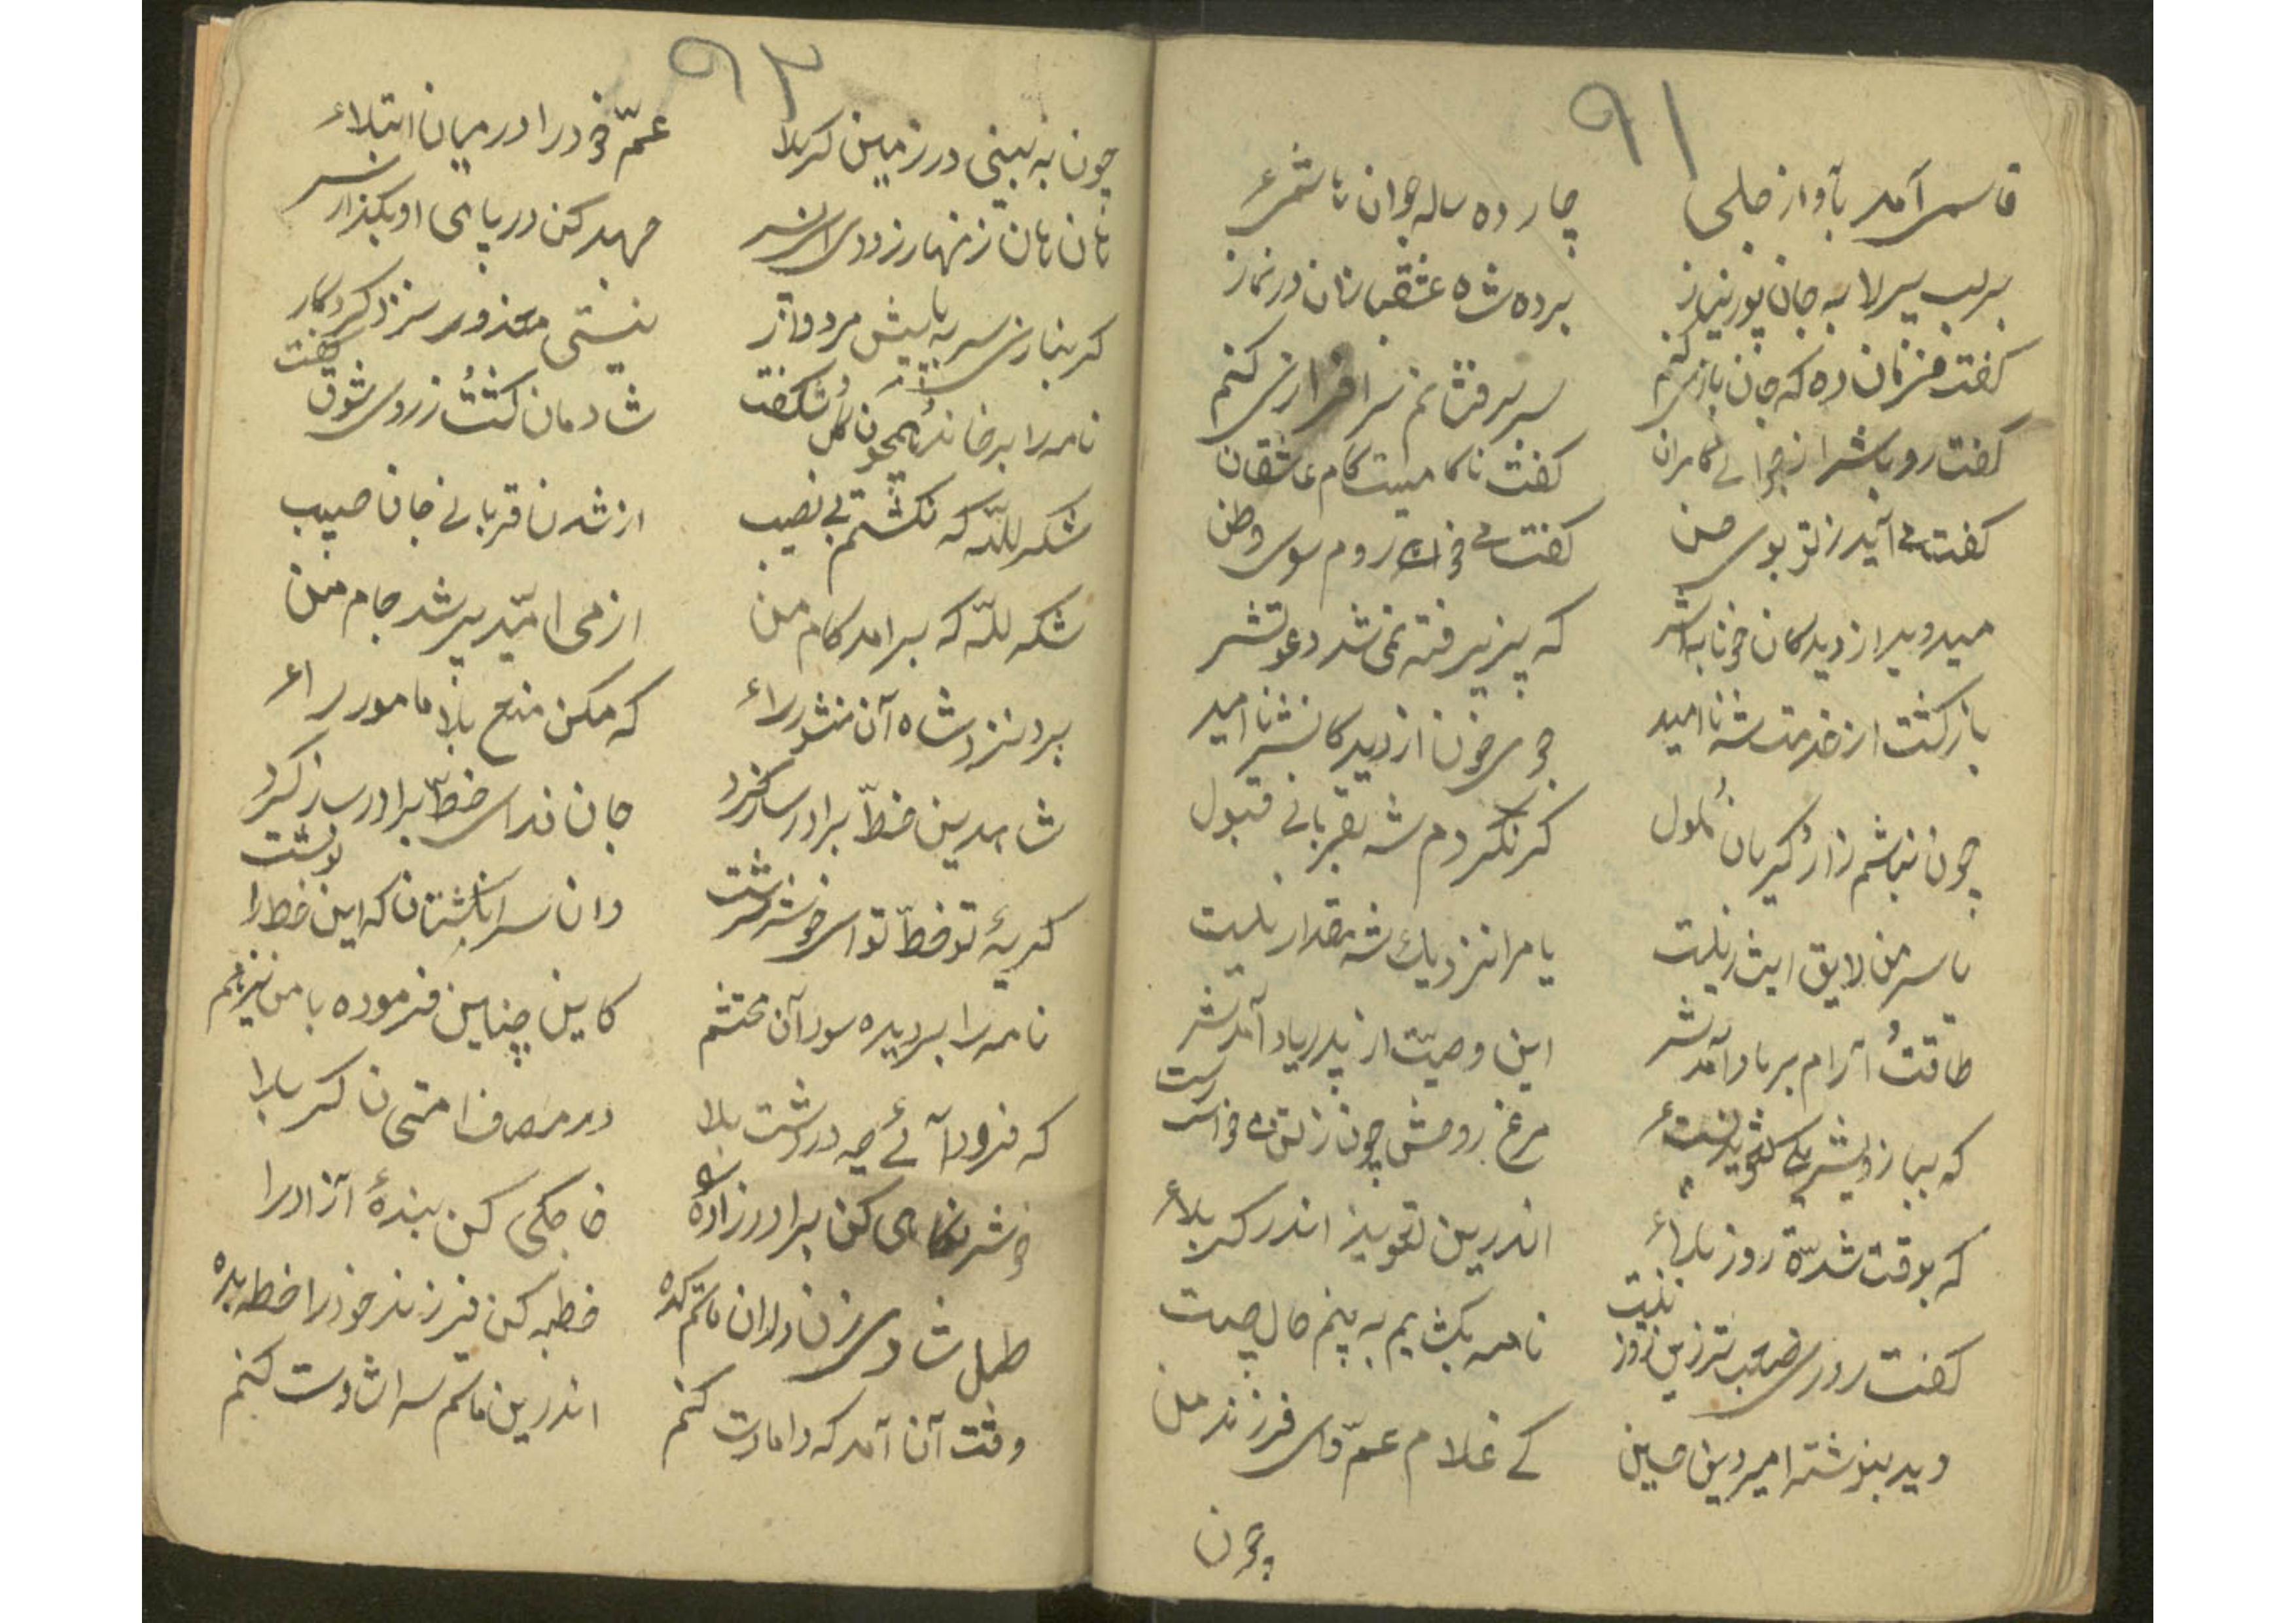 ۹۱
قاسم آمد بآواز جلی چارده ساله جوان با شمع
بر لب پیر لا به جان پور نیاز برده شاه عشقبازان در نماز
کفت فرمان ده که جان بازی کنم سر برفشانم سرافرازی کنم
کفت رو باش از جوانی کامران کفت ناکامیست کام عاشقان
کفت می آید ز تو بوی حسن کفت می خواهم روم سوی وطن
میدوید از دیدکان خونابه اش که پذیرفته نمی شد دعوتش
بازکشت از خدمت شه ناامید جوی خون از دیدکانش ناامید
چون نباشم زار و کیریان و ملول کر نکردم شه بقربانی قبول
یا سر من لایق ایثار نیست یا مرا نزدیك شه مقدار نیست
طاقت و آرام بر باد آمدش این وصیّت از پدر یاد آمدش
که ببازویش یکی تعویذ بست مرغ روحش چون ز تن می خواست رست
که بوقت شدّة روز بلاء اندرین تعویذ اندر کربلاء
کفت روزی صعب تر زین روز نیست نامه بکشایم به بینم حال چیست
دید بنوشته امیر دین حسین کے غلام عمّ وای فرزند من
چون
۹۲
چون به بینی در زمین کربلا عمّ خود را در میان ابتلاء
هان هان زنهار زودی ای پسر جهد کن در پای او بکذار سر
کر نبازی سر به پایش مردوار نیستی معذور نزد کردکار
نامه را بر خاند و همچون کل شکفت شادمان کشت و ز روی شوق کفت
شکر للّه که نکشتم بی نصیب از شدن قربانی جان حبیب
شکر للّه که برآمد کام من از می امّید پر شد جام من
برد نزد شاه آن منشور راء که مکن منع بلا مامور راء
شاه دین خطّ برادر ساز کرد جان فدای خطّ برادر ساز کرد
کریهٔ تو خطّ تو ای خوش سرشت وان سر انکشتان که این خط را نوشت
نامه را بر دیده سود آن محتشم کاین چناین فرموده با من نیز هم
که فرود آئے چه در دشت بلا در مصاف امتحان کربلا
خوش نکاهی کن برادر زاده را خاجکی کن بندهٔ آزاد را
طبل شادی زن در ان ماتم کده خطبه کن فرزند خود را خطبه ده
وقت آن آمد که دامادت کنم اندرین ماتم سرا شادت کنم